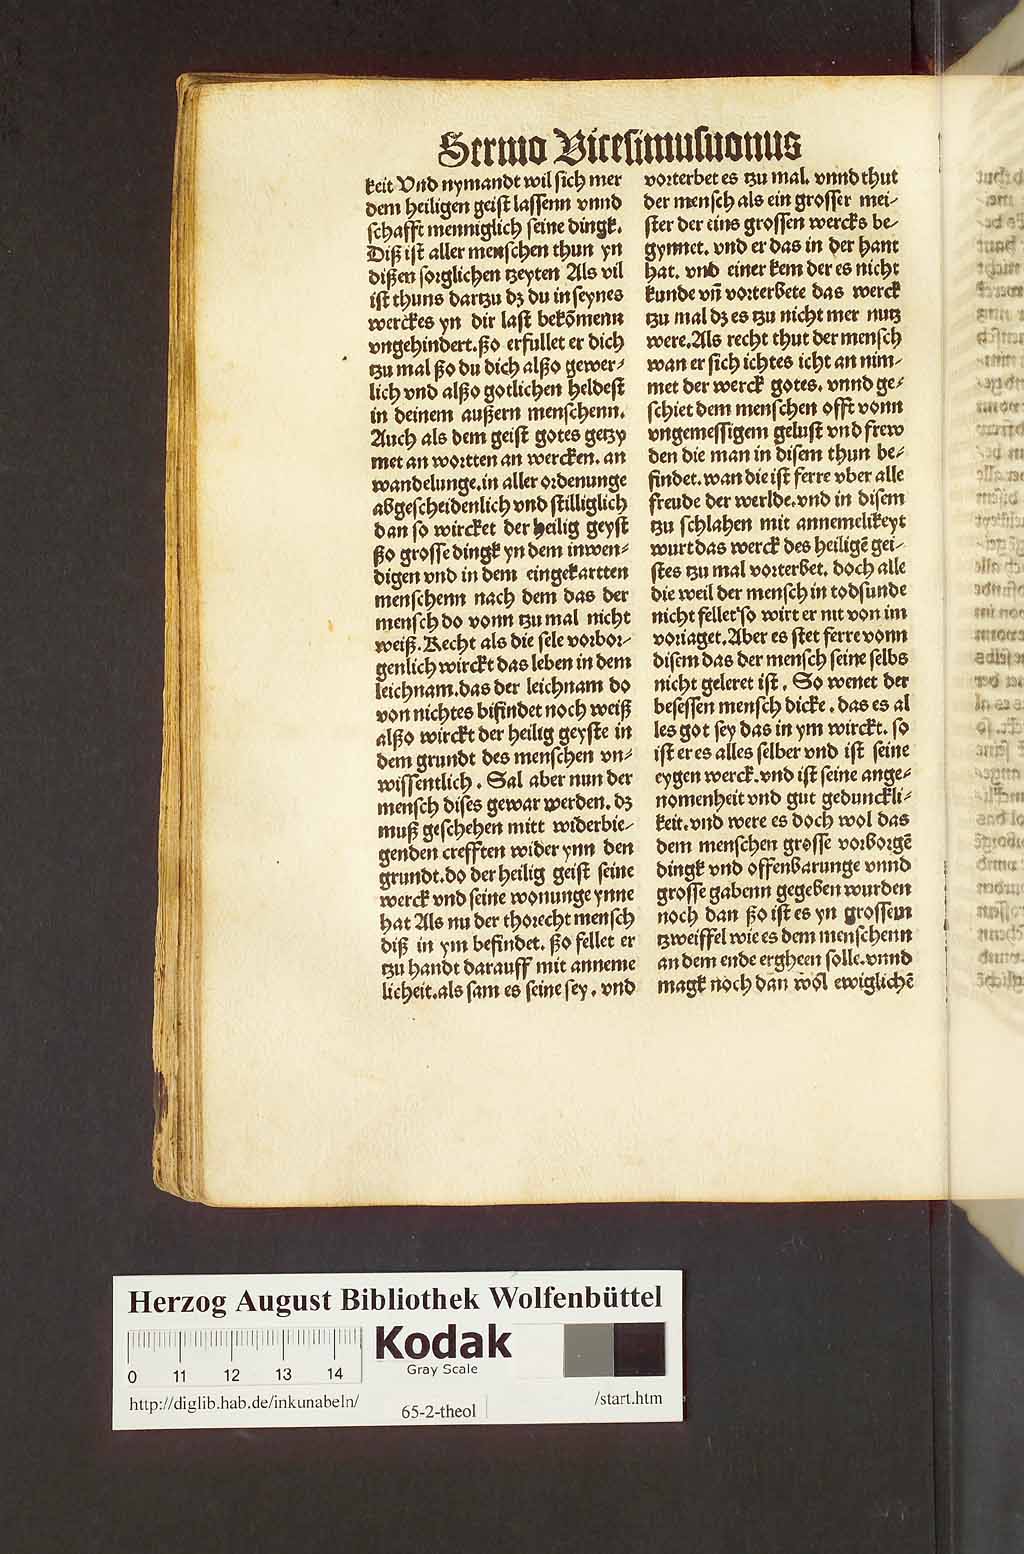 Sermo Vicesimusnonus
keit Vnd nymandt wil sich mer
dem heiligen geist lassenn vnnd
schafft menniglich seine dingk.
Diß ist aller menschen thun yn
dißen sorglichen tzeyten Als vil
ist thuns dartzu dꝫ du in seynes
werckes yn dir last bekōmenn
vngehindert. ßo erfullet er dich
tzu mal ßo du dich alßo gewer⸗
lich vnd alßo gotlichen heldest
in deinem außern menschenn.
Auch als dem geist gotes getzy
met an wortten an wercken. an
wandelunge. in aller ordenunge
abgescheidenlich vnd stilliglich
dan so wircket der heilig geyst
ßo grosse dingk yn dem inwen⸗
digen vnd in dem eingekartten
menschenn nach dem das der
mensch do vonn tzu mal nicht
weiß. Recht als die sele vorbor⸗
genlich wirckt das leben in dem
leichnam. das der leichnam do
von nichtes bifindet noch weiß
alßo wirckt der heilig geyste in
dem grundt des menschen vn⸗
wissentlich. Sal aber nun der
mensch dises gewar werden. dꝫ
muß geschehen mitt widerbie⸗
genden crefften wider ynn den
grundt. do der heilig geist seine
werck vnd seine wonunge ynne
hat Als nu der thorecht mensch
diß in ym befindet. ßo fellet er
tzu handt darauff mit anneme
licheit. als sam es seine sey. vnd
vorterbet es tzu mal. vnnd thut
der mensch als ein grosser mei⸗
ster der eins grossen wercks be⸗
gynnet. vnd er das in der hant
hat. vnd einer kem der es nicht
kunde vñ vorterbete das werck
tzu mal dꝫ es tzu nicht mer nutz
were. Als recht thut der mensch
wan er sich ichtes icht an nim⸗
met der werck gotes. vnnd ge⸗
schiet dem menschen offt vonn
vngemessigem gelust vnd frew
den die man in disem thun be⸗
findet. wan die ist ferre vber alle
freude der werlde. vnd in disem
tzu schlahen mit annemelikeyt
wurt das werck des heiligē gei⸗
stes tzu mal vorterbet. doch alle
die weil der mensch in todsunde
nicht fellet so wirt er nit von im
voriaget. Aber es stet ferre vonn
disem das der mensch seine selbs
nicht geleret ist. So wenet der
besessen mensch dicke. das es al
les got sey das in ym wirckt. so
ist er es alles selber vnd ist seine
eygen werck. vnd ist seine ange⸗
nomenheit vnd gut gedunckli⸗
keit. vnd were es doch wol das
dem menschen grosse vorborgē
dingk vnd offenbarunge vnnd
grosse gabenn gegeben wurden
noch dan ßo ist es yn grossem
tzweiffel wie es dem menschenn
an dem ende ergheen solle. vnnd
magk noch dan wol ewiglichē
Herzog August Bibliothek Wolfenbüttel
0 11 12 13 14
Kodak
Gray Scale
http://diglib.hab.de/inkunabeln/
65-2-theol
/start.htm